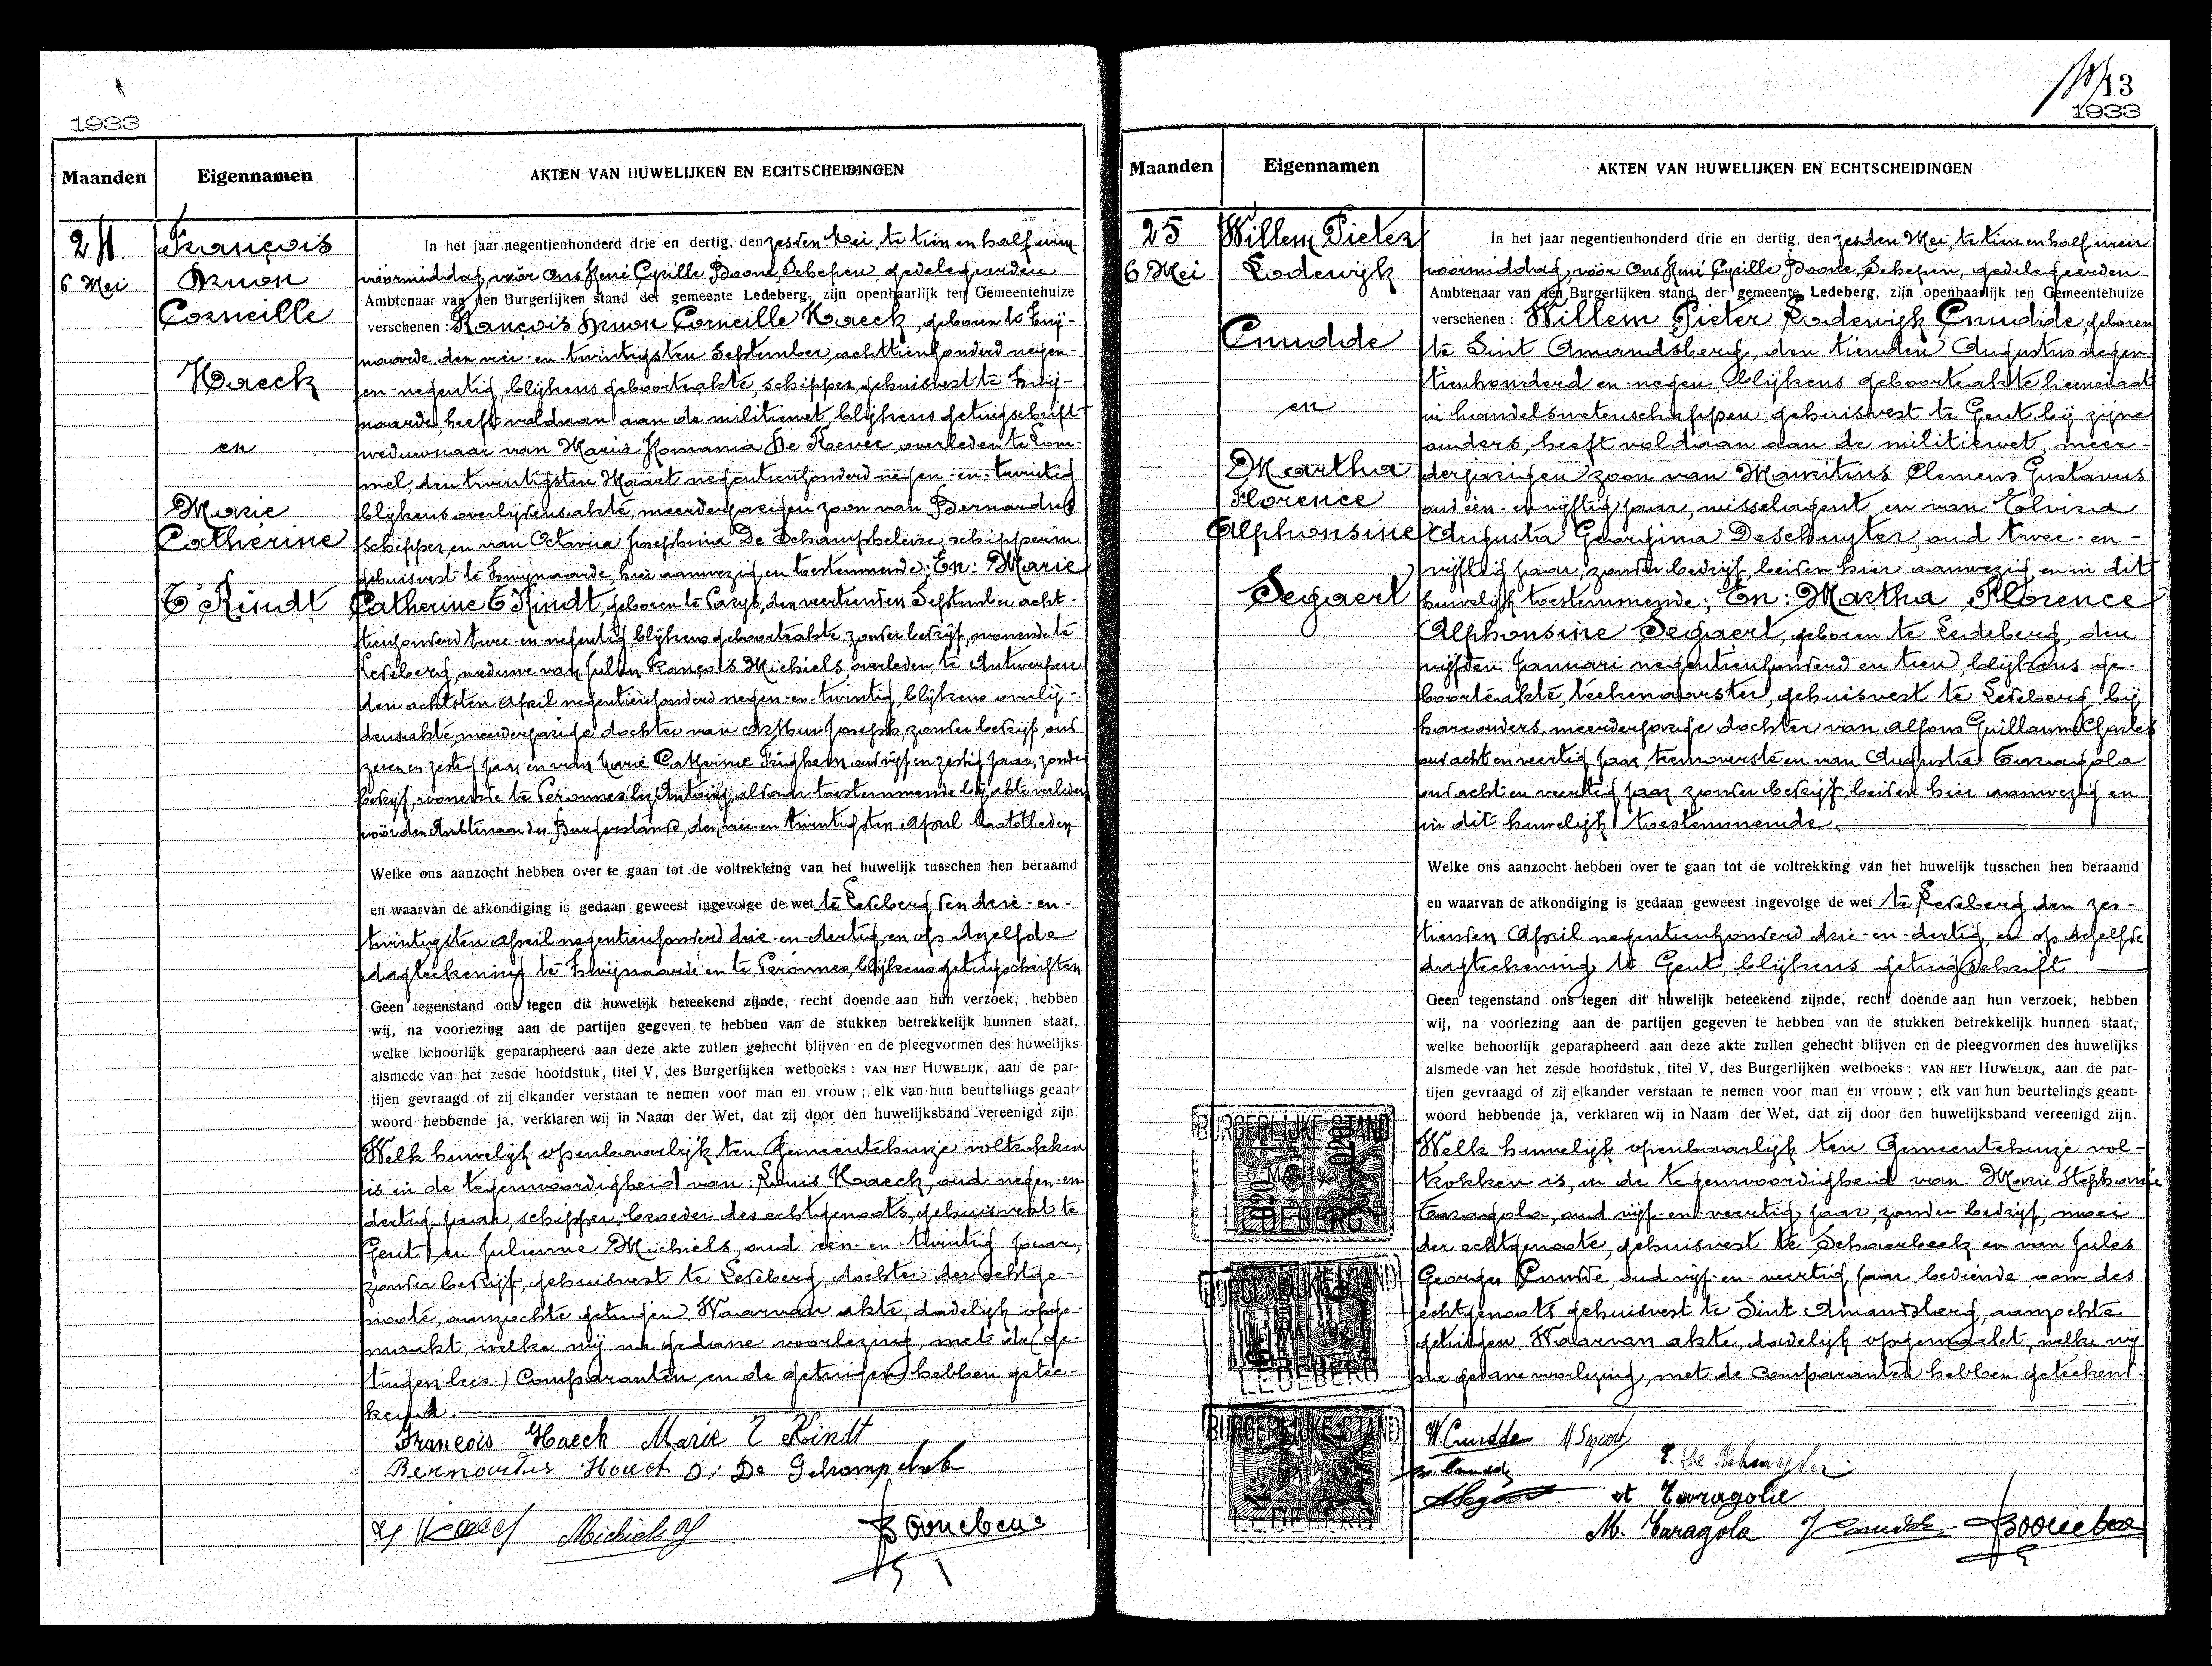 1933
Maanden
Eigennamen
AKTEN VAN HUWELIJKEN EN ECHTSCHEIDINGEN
24
6 Mei
François
Corneille
Haeck
en
Marie
Catherine
T'Kindt
In het jaar negentienhonderd drie en dertig, den zesden Mei, te tien en half uren
voormiddag, vóór Ons René Cyrille Boone, Schepen, gedelegeerden
Ambtenaar van den Burgerlijken stand der gemeente Ledeberg, zijn openbaarlijk ten Gemeentehuize
verschenen : François Corneille Haeck, geboren te Zwij-
naarde, den vier-en-twintigsten September achttienhonderd negen-
en-negentig, blijkens geboorteakte, schipper, gehuisvest te Zwij-
naarde, heeft voldaan aan de militiewet, blijkens getuigschrift
weduwnaar van Maria Romania De Kever, overleden te Lom-
mel, den twintigsten Maart negentienhonderd negen-en-twintig
blijkens overlijdensakte, meerderjarigen zoon van Bernardus
schipper, en van Octavia Josephina De Schampheleire, schipperin
gehuisvest te Zwijnaarde, hier aanwezig en toestemmende; En: Marie
Catherine T'Kindt, geboren te Parys, den veertienden September acht-
tienhonderd twee-en-negentig, blijkens geboorteakte, zonder bedrijf, wonende te
Ledeberg, weduwe van François Michiels overleden te Antwerpen
den achtsten April negentienhonderd negen-en-twintig, blijkens overlij-
densakte, meerderjarige dochter van Arthur Joseph, zonder bedrijf, oud
zeven en zestig jaar en van Marie Catherine oud vijf en zestig jaar, zonder
bedrijf, wonende te Péronnes lez Antoing, aldaar toestemmende bij akte verleden
vóór den Ambtenaar des Burgerstands, den vier en twintigsten April laatstleden
Welke ons aanzocht hebben over te gaan tot de voltrekking van het huwelijk tusschen hen beraamd
en waarvan de afkondiging is gedaan geweest ingevolge de wet te Ledeberg den drie-en-
twintigsten April negentienhonderd drie-en-dertig, en op dezelfde
dagteekening te Zwijnaarde en te Péronnes, blijkens getuigschriften
Geen tegenstand ons tegen dit huwelijk beteekend zijnde, recht doende aan hun verzoek, hebben
wij, na voorlezing aan de partijen gegeven te hebben van de stukken betrekkelijk hunnen staat,
welke behoorlijk geparapheerd aan deze akte zullen gehecht blijven en de pleegvormen des huwelijks
alsmede van het zesde hoofdstuk, titel V, des Burgerlijken wetboeks : VAN HET HUWELIJK, aan de par-
tijen gevraagd of zij elkander verstaan te nemen voor man en vrouw ; elk van hun beurtelings geant-
woord hebbende ja, verklaren wij in Naam der Wet, dat zij door den huwelijksband vereenigd zijn.
Welk huwelijk openbaarlijk ten Gemeentehuize voltrokken
is in de tegenwoordigheid van: Louis Haeck, oud negen-en-
dertig jaar, schipper, broeder des echtgenoots, gehuisvest te
Gent, en Julienne Michiels, oud één-en-twintig jaar,
zonder bedrijf, gehuisvest te Ledeberg, dochter der echtge-
noote, aanzochte getuigen. Waarvan akte, dadelijk opge-
maakt, welke wij na gedane voorlezing, met de (ge-
tuigen lees:) Comparanten en de getuigen hebben getee-
kend.
François Haeck Marie T Kindt
Bernardus Haeck
Michiels
1933
13
1933
Maanden
Eigennamen
AKTEN VAN HUWELIJKEN EN ECHTSCHEIDINGEN
25
6 Mei
Willem Pieter
Lodewijk
Cnudde
en
Martha
Florence
Alphonsine
Segaert
In het jaar negentienhonderd drie en dertig, den zesden Mei, te tien en half uren
voormiddag, vóór Ons René Cyrille Boone, Schepen, gedelegeerden
Ambtenaar van den Burgerlijken stand der gemeente Ledeberg, zijn openbaarlijk ten Gemeentehuize
verschenen : Willem Pieter Lodewijk Cnudde, geboren
te Sint Amandsberg, den tienden Augustus negen-
tienhonderd en negen, blijkens geboorteakte, licenciaat
in handelswetenschappen, gehuisvest te Gent, bij zijne
ouders, heeft voldaan aan de militiewet, meer-
derjarigen zoon van Mauritius Clemens Gustavus
oud één-en-vijftig jaar, wisselagent, en van Elvira
Augusta Georgina Deschuyter, oud twee-en-
vijftig jaar, zonder bedrijf, beiden hier aanwezig en in dit
huwelijk toestemmende; En: Martha Florence
Alphonsine Segaert, geboren te Ledeberg, den
vijfden Januari negentienhonderd en tien, blijkens ge-
boorteakte, teekenaarster, gehuisvest te Ledeberg bij
hare ouders, meerderjarige dochter van Alfons Guillaume Charles
oud acht en veertig jaar, treinoverste en van Augusta Taragola
oud acht en veertig jaar zonder bedrijf, beiden hier aanwezig en
in dit huwelijk toestemmende.
Welke ons aanzocht hebben over te gaan tot de voltrekking van het huwelijk tusschen hen beraamd
en waarvan de afkondiging is gedaan geweest ingevolge de wet te Ledeberg den zes-
tienden April negentienhonderd drie-en-dertig, en op dezelfde
dagteekening te Gent, blijkens getuigschrift
Geen tegenstand ons tegen dit huwelijk beteekend zijnde, recht doende aan hun verzoek, hebben
wij, na voorlezing aan de partijen gegeven te hebben van de stukken betrekkelijk hunnen staat,
welke behoorlijk geparapheerd aan deze akte zullen gehecht blijven en de pleegvormen des huwelijks
alsmede van het zesde hoofdstuk, titel V, des Burgerlijken wetboeks : VAN HET HUWELIJK, aan de par-
tijen gevraagd of zij elkander verstaan te nemen voor man en vrouw ; elk van hun beurtelings geant-
woord hebbende ja, verklaren wij in Naam der Wet, dat zij door den huwelijksband vereenigd zijn.
Welk huwelijk openbaarlijk ten Gemeentehuize vol-
trokken is, in de tegenwoordigheid van Marie Stephanie
Taragola, oud vijf-en-veertig jaar, zonder bedrijf, moei
der echtgenoote, gehuisvest te Schaerbeek en van Jules
Georges Cnudde, oud vijf-en-veertig jaar, bediende oom des
echtgenoots gehuisvest te Sint Amandsberg, aanzochte
getuigen. Waarvan akte, dadelijk opgemaakt, welke wij
na gedane voorlezing, met de comparanten hebben geteekend.
BURGERLIJKE STAND
LEDEBERG
BURGERLIJKE STAND
6 MAI 193
LEDEBERG
BURGERLIJKE STAND
LEDEBERG
W. Cnudde M Segaert
E. De Schuyter
A Taragola
M. Taragola J Cnudde